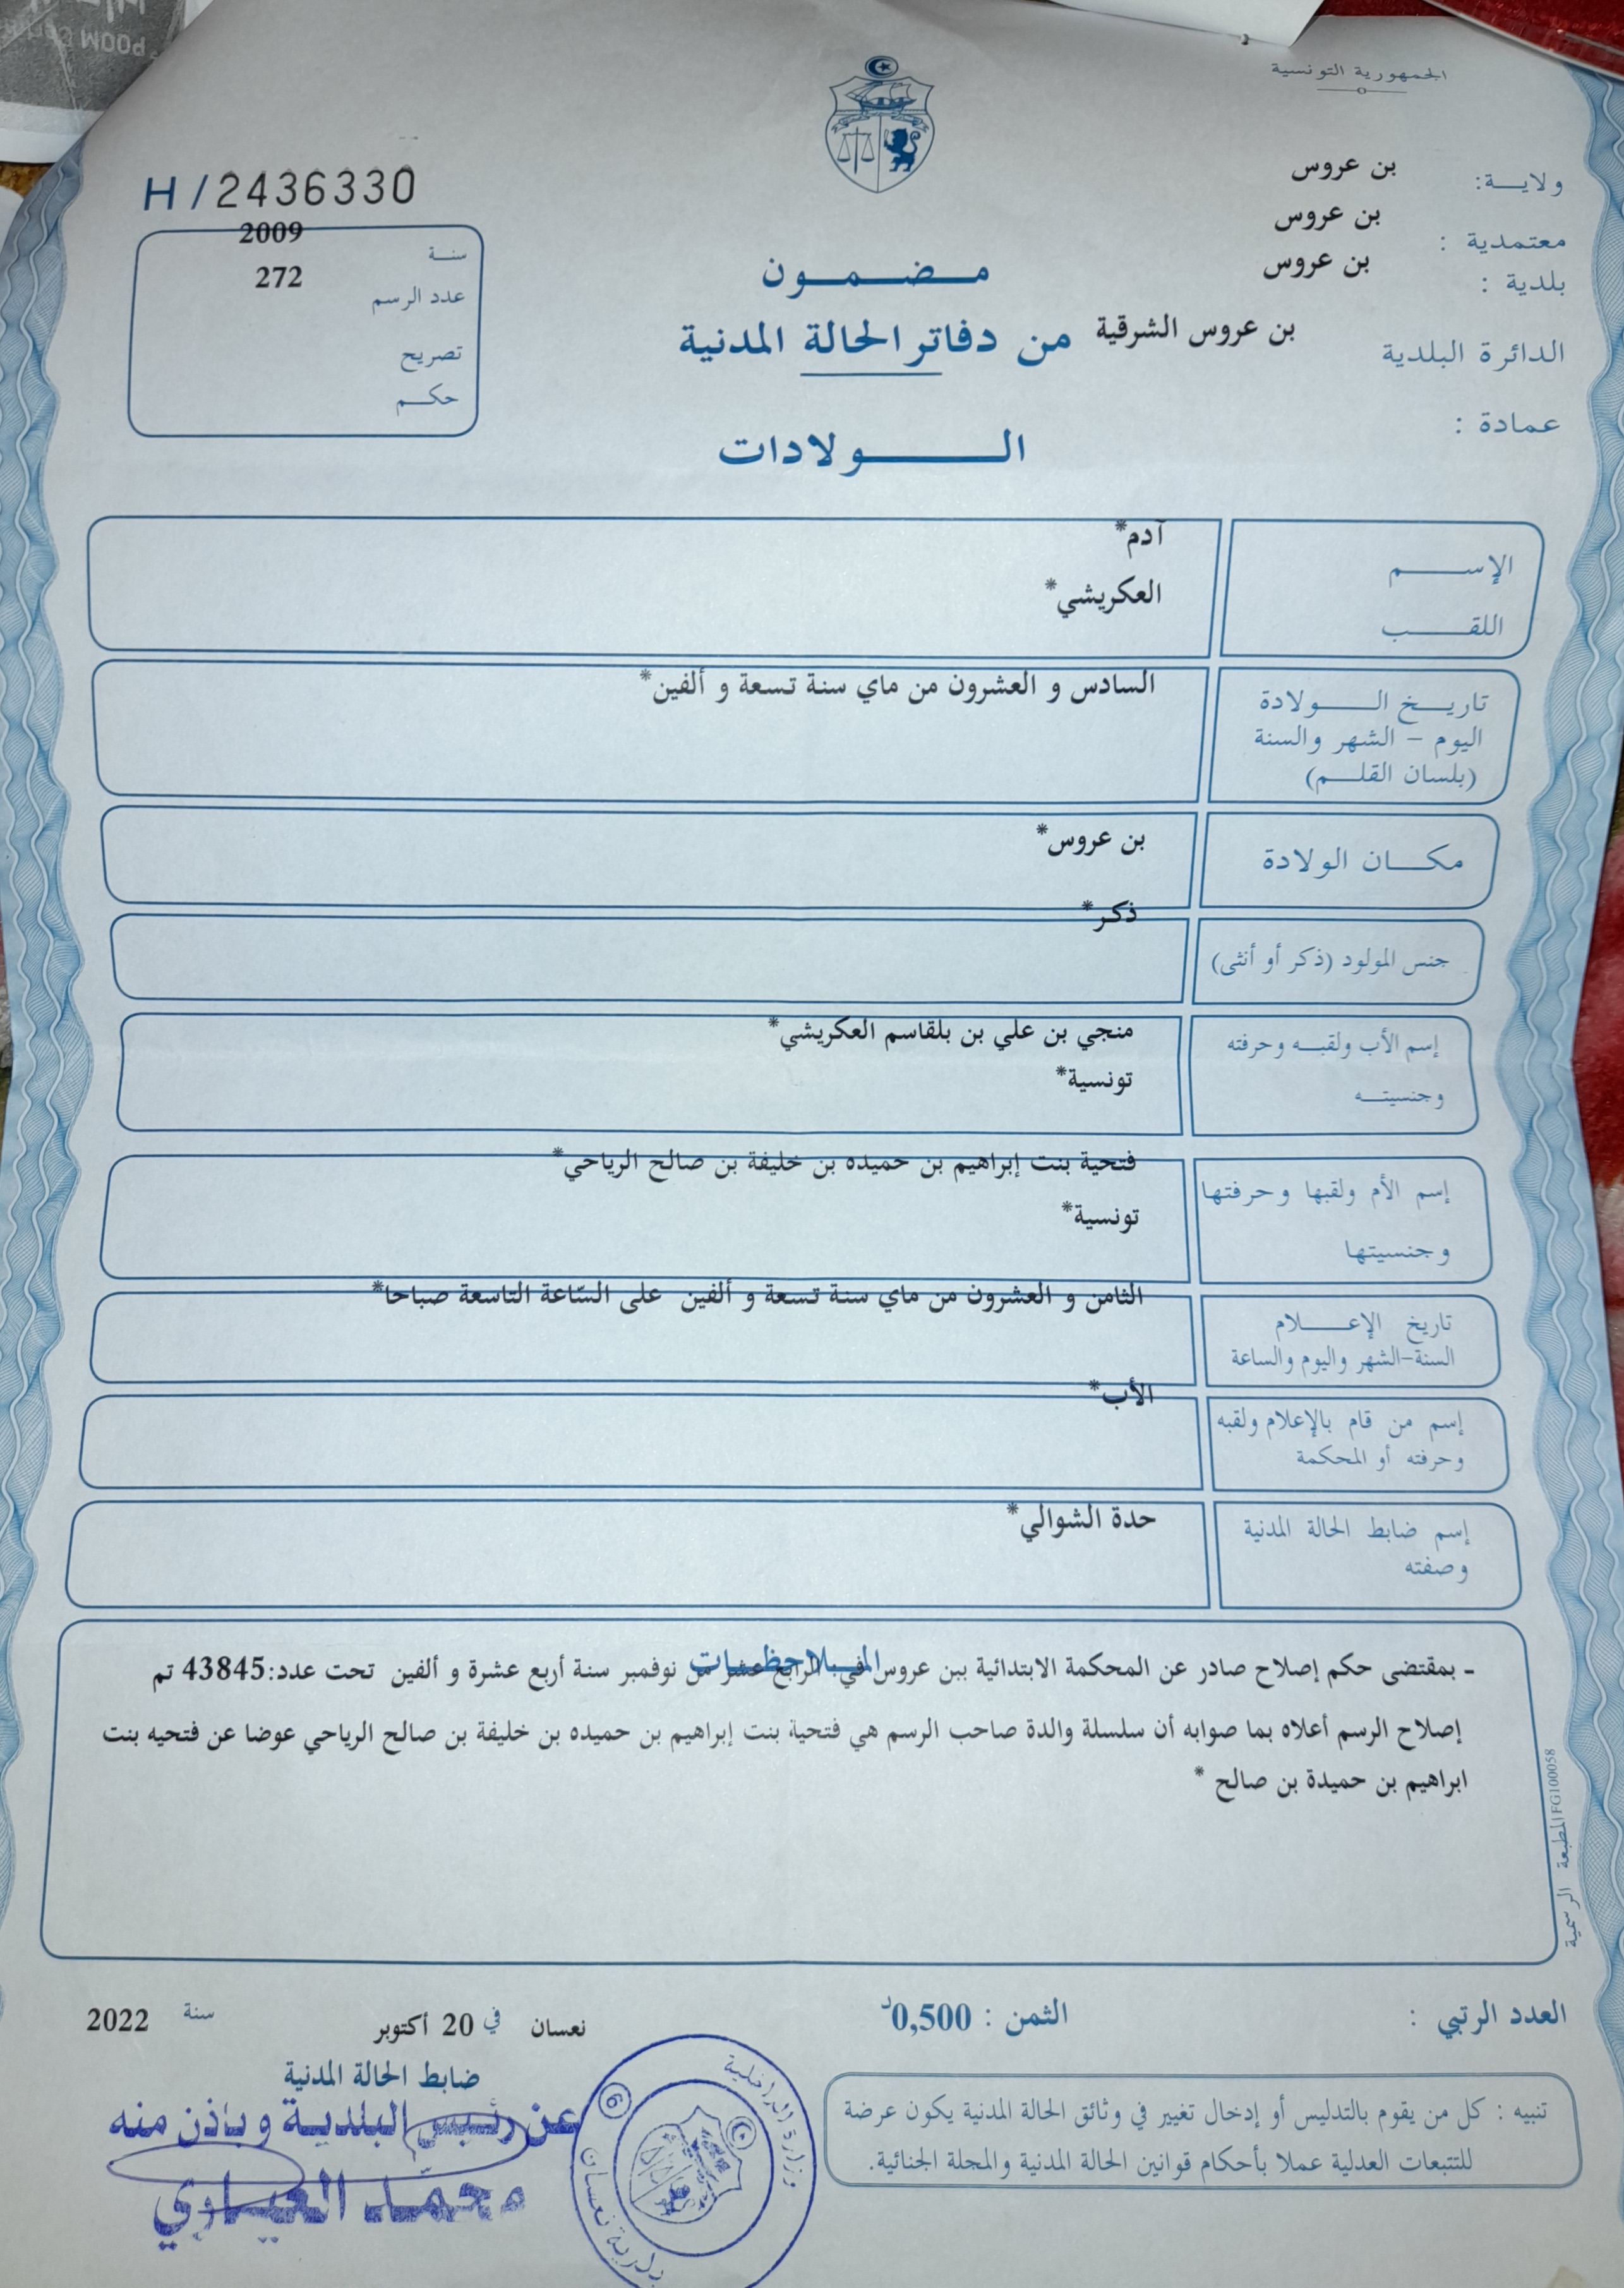 الجمهورية التونسية
ولايـــة: بن عروس
معتمدية : بن عروس
بلدية : بن عروس
الدائرة البلدية بن عروس الشرقية
عمادة :
H / 2436330
سنـة 2009
عدد الرسم 272
تصريح
حكـم
مـضـمـون
من دفاتر الحالة المدنية
الـولادات
الإســـم آدم*
اللقـــب العكريشي*
تاريـخ الــولادة السادس و العشرون من ماي سنة تسعة و ألفين*
اليوم – الشهر والسنة
(بلسان القلـم)
مكـان الولادة بن عروس*
جنس المولود (ذكر أو أنثى) ذكر*
إسم الأب ولقبـه وحرفته منجي بن علي بن بلقاسم العكريشي*
وجنسيتـه تونسية*
إسم الأم ولقبها وحرفتها فتحية بنت إبراهيم بن حميده بن خليفة بن صالح الرياحي*
وجنسيتها تونسية*
تاريخ الإعــلام الثامن و العشرون من ماي سنة تسعة و ألفين على السّاعة التاسعة صباحا*
السنة-الشهر واليوم والساعة
إسم من قام بالإعلام ولقبه الأب*
وحرفته أو المحكمة
إسم ضابط الحالة المدنية حدة الشوالي*
وصفته
المـلاحظـات
- بمقتضى حكم إصلاح صادر عن المحكمة الابتدائية ببن عروس في الرابع عشر من نوفمبر سنة أربع عشرة و ألفين تحت عدد:43845 تم
إصلاح الرسم أعلاه بما صوابه أن سلسلة والدة صاحب الرسم هي فتحية بنت إبراهيم بن حميده بن خليفة بن صالح الرياحي عوضا عن فتحيه بنت
ابراهيم بن حميدة بن صالح *
المطبعة الرسمية FG100058
العدد الرتبي :
الثمن : 0,500د
نعسان في 20 أكتوبر سنة 2022
ضابط الحالة المدنية
عن رئيس البلدية وباذن منه
محمّد العياري
وزارة الداخلية
6
بلدية نعسان
تنبيه : كل من يقوم بالتدليس أو إدخال تغيير في وثائق الحالة المدنية يكون عرضة
للتتبعات العدلية عملا بأحكام قوانين الحالة المدنية والمجلة الجنائية.